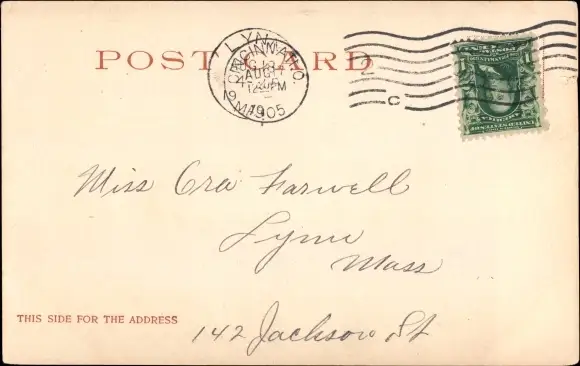 POST CARD
CINCINNATI, O.
AUG 17
12-PM
1905
2
C
Miss Ora Farwell
Lynn
Mass
THIS SIDE FOR THE ADDRESS
142 Jackson St